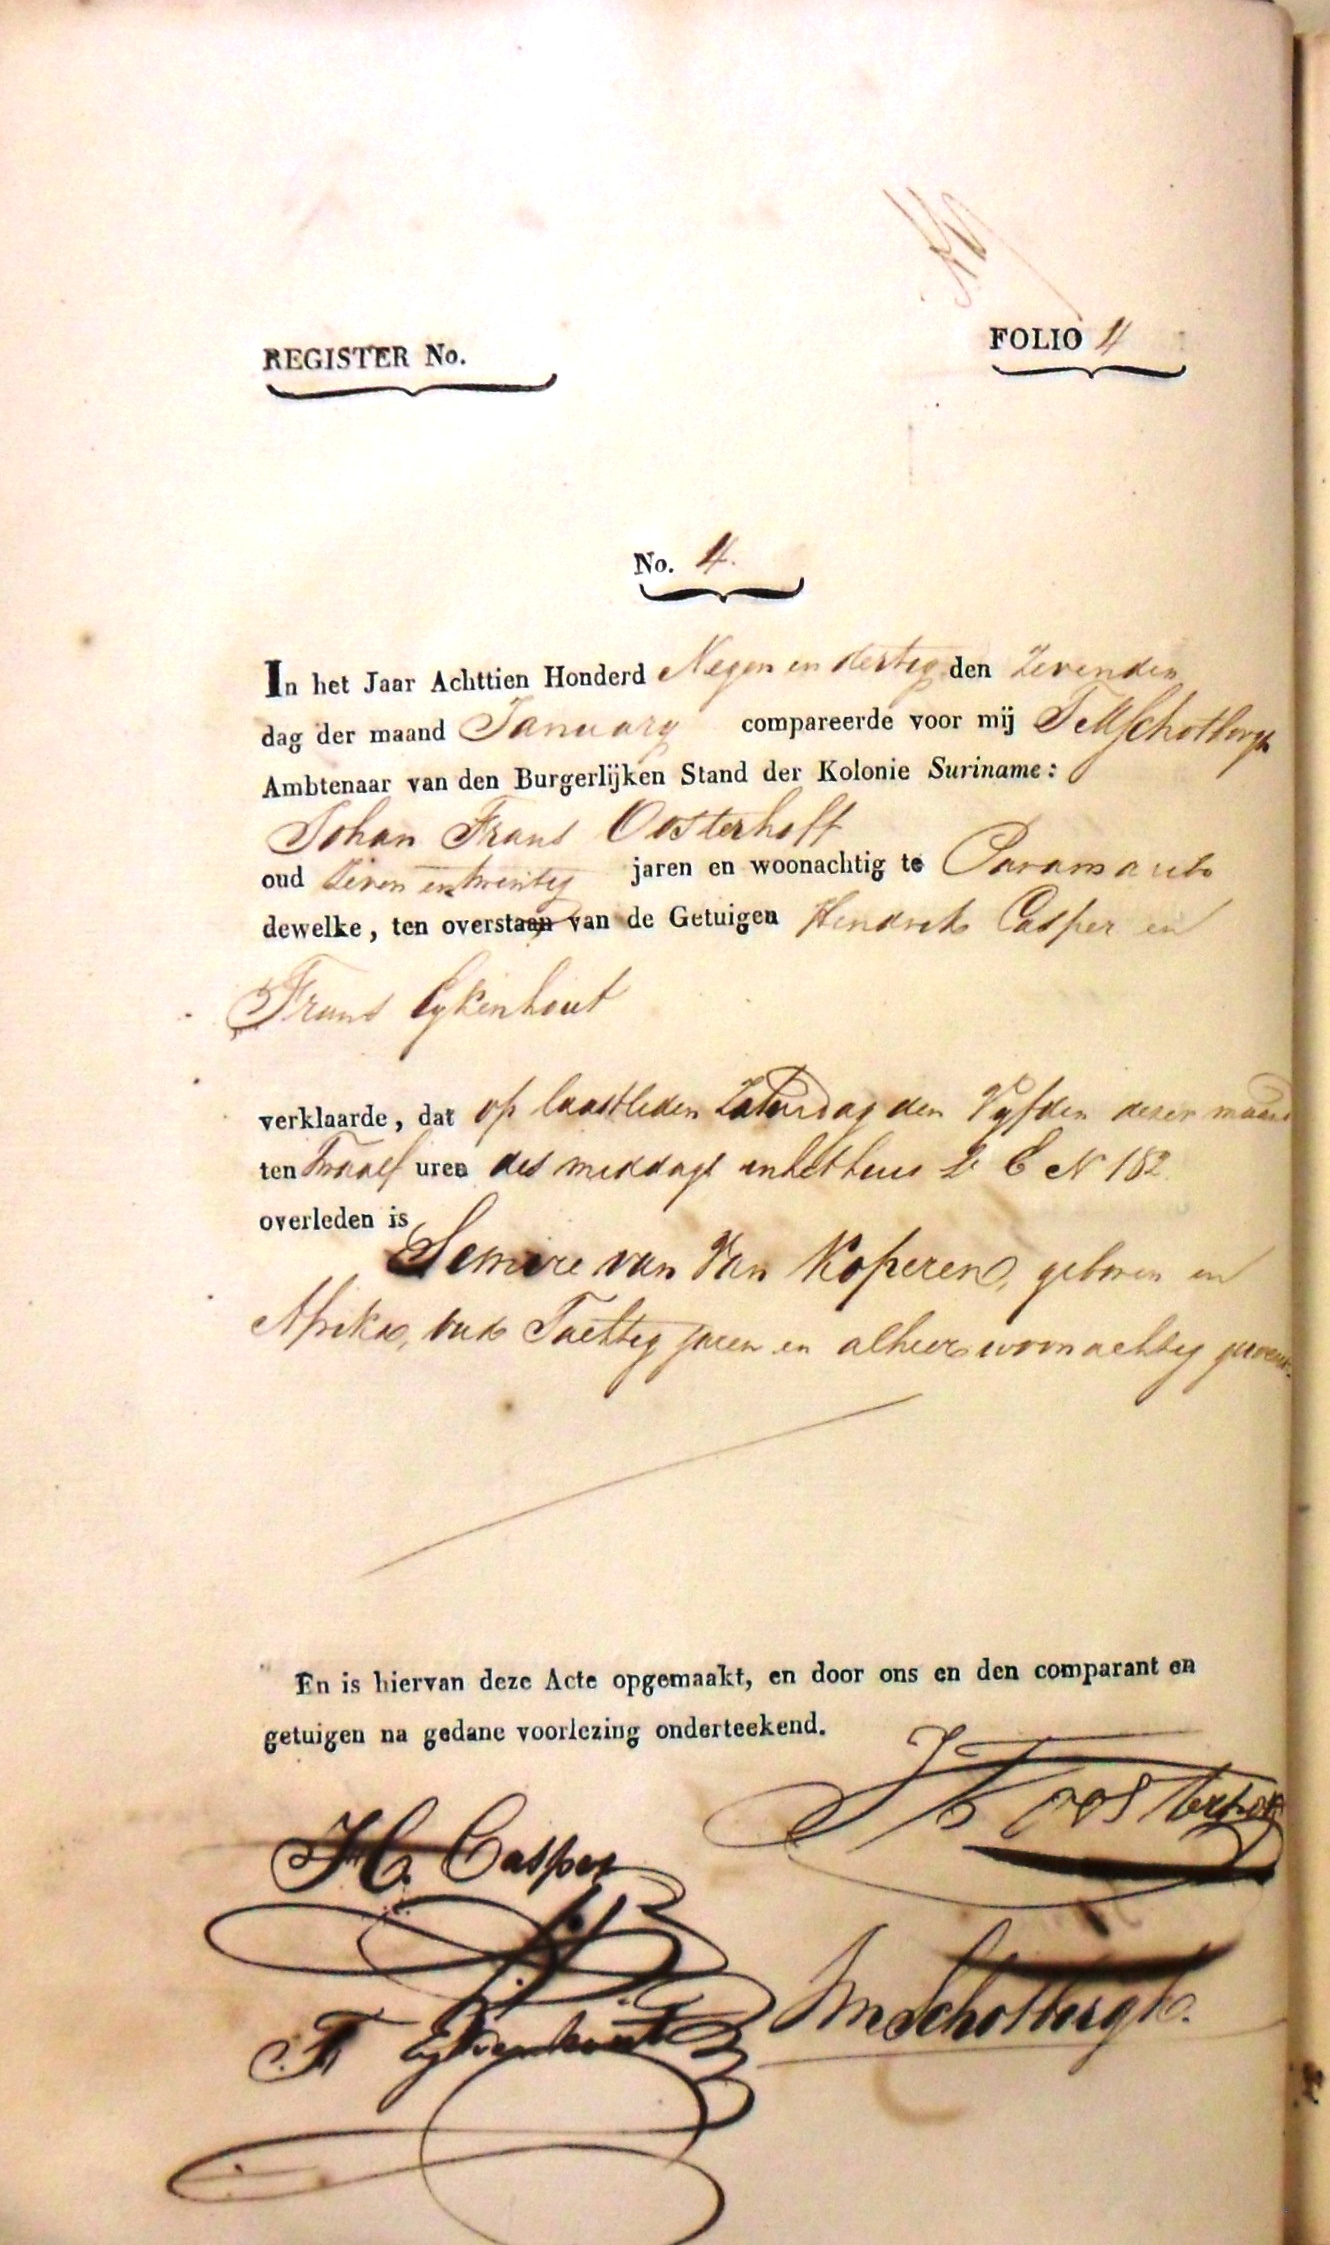 REGISTER No.
FOLIO 4
No. 4.
In het Jaar Achttien Honderd Negen en dertig den Zevenden
dag der maand January compareerde voor mij Schotborgh
Ambtenaar van den Burgerlijken Stand der Kolonie Suriname:
Johan Frans Oosterhoff
oud Zeven en twintig jaren en woonachtig te Paramaribo
dewelke, ten overstaan van de Getuigen Hendrik Casper en
Frans Eykenhout
verklaarde, dat op laastleden Zaturdag den Vyfden dezer maand
ten Twaalf uren des middags in het huis L. C N 182
overleden is
Semire van Van Koperen, geboren in
Afrika, oud Tachtig jaren en alhier woonachtig geweest.
En is hiervan deze Acte opgemaakt, en door ons en den comparant en
getuigen na gedane voorlezing onderteekend.
Oosterhoff
H. Casper
Schotborgh.
F Eykenhout